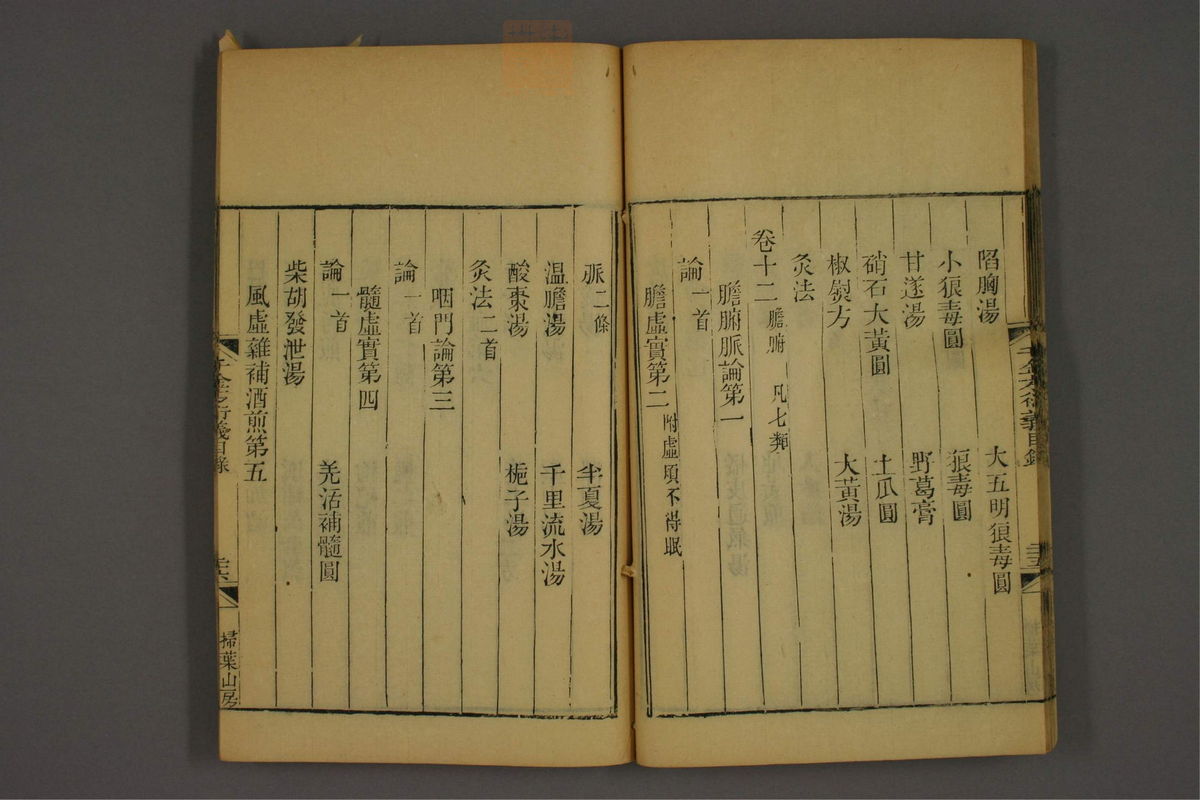 陷胸湯　大五明狼毒圓
小狼毒圓　狼毒圓
甘遂湯　野葛膏
硝石大黃圓　土瓜圓
椒熨方　大黃湯
灸法
卷十二膽腑　凡七類
膽腑脈論第一
論一首
膽虛實第二附虛煩不得眠
脈二條　半夏湯
温膽湯　千里流水湯
酸棗湯　梔子湯
灸法二首
咽門論第三
論一首
髓虛實第四
論一首　羌活補髓圓
柴胡發泄湯
風虛雜補酒煎第五
千金方衍義目錄　三六
掃葉山房